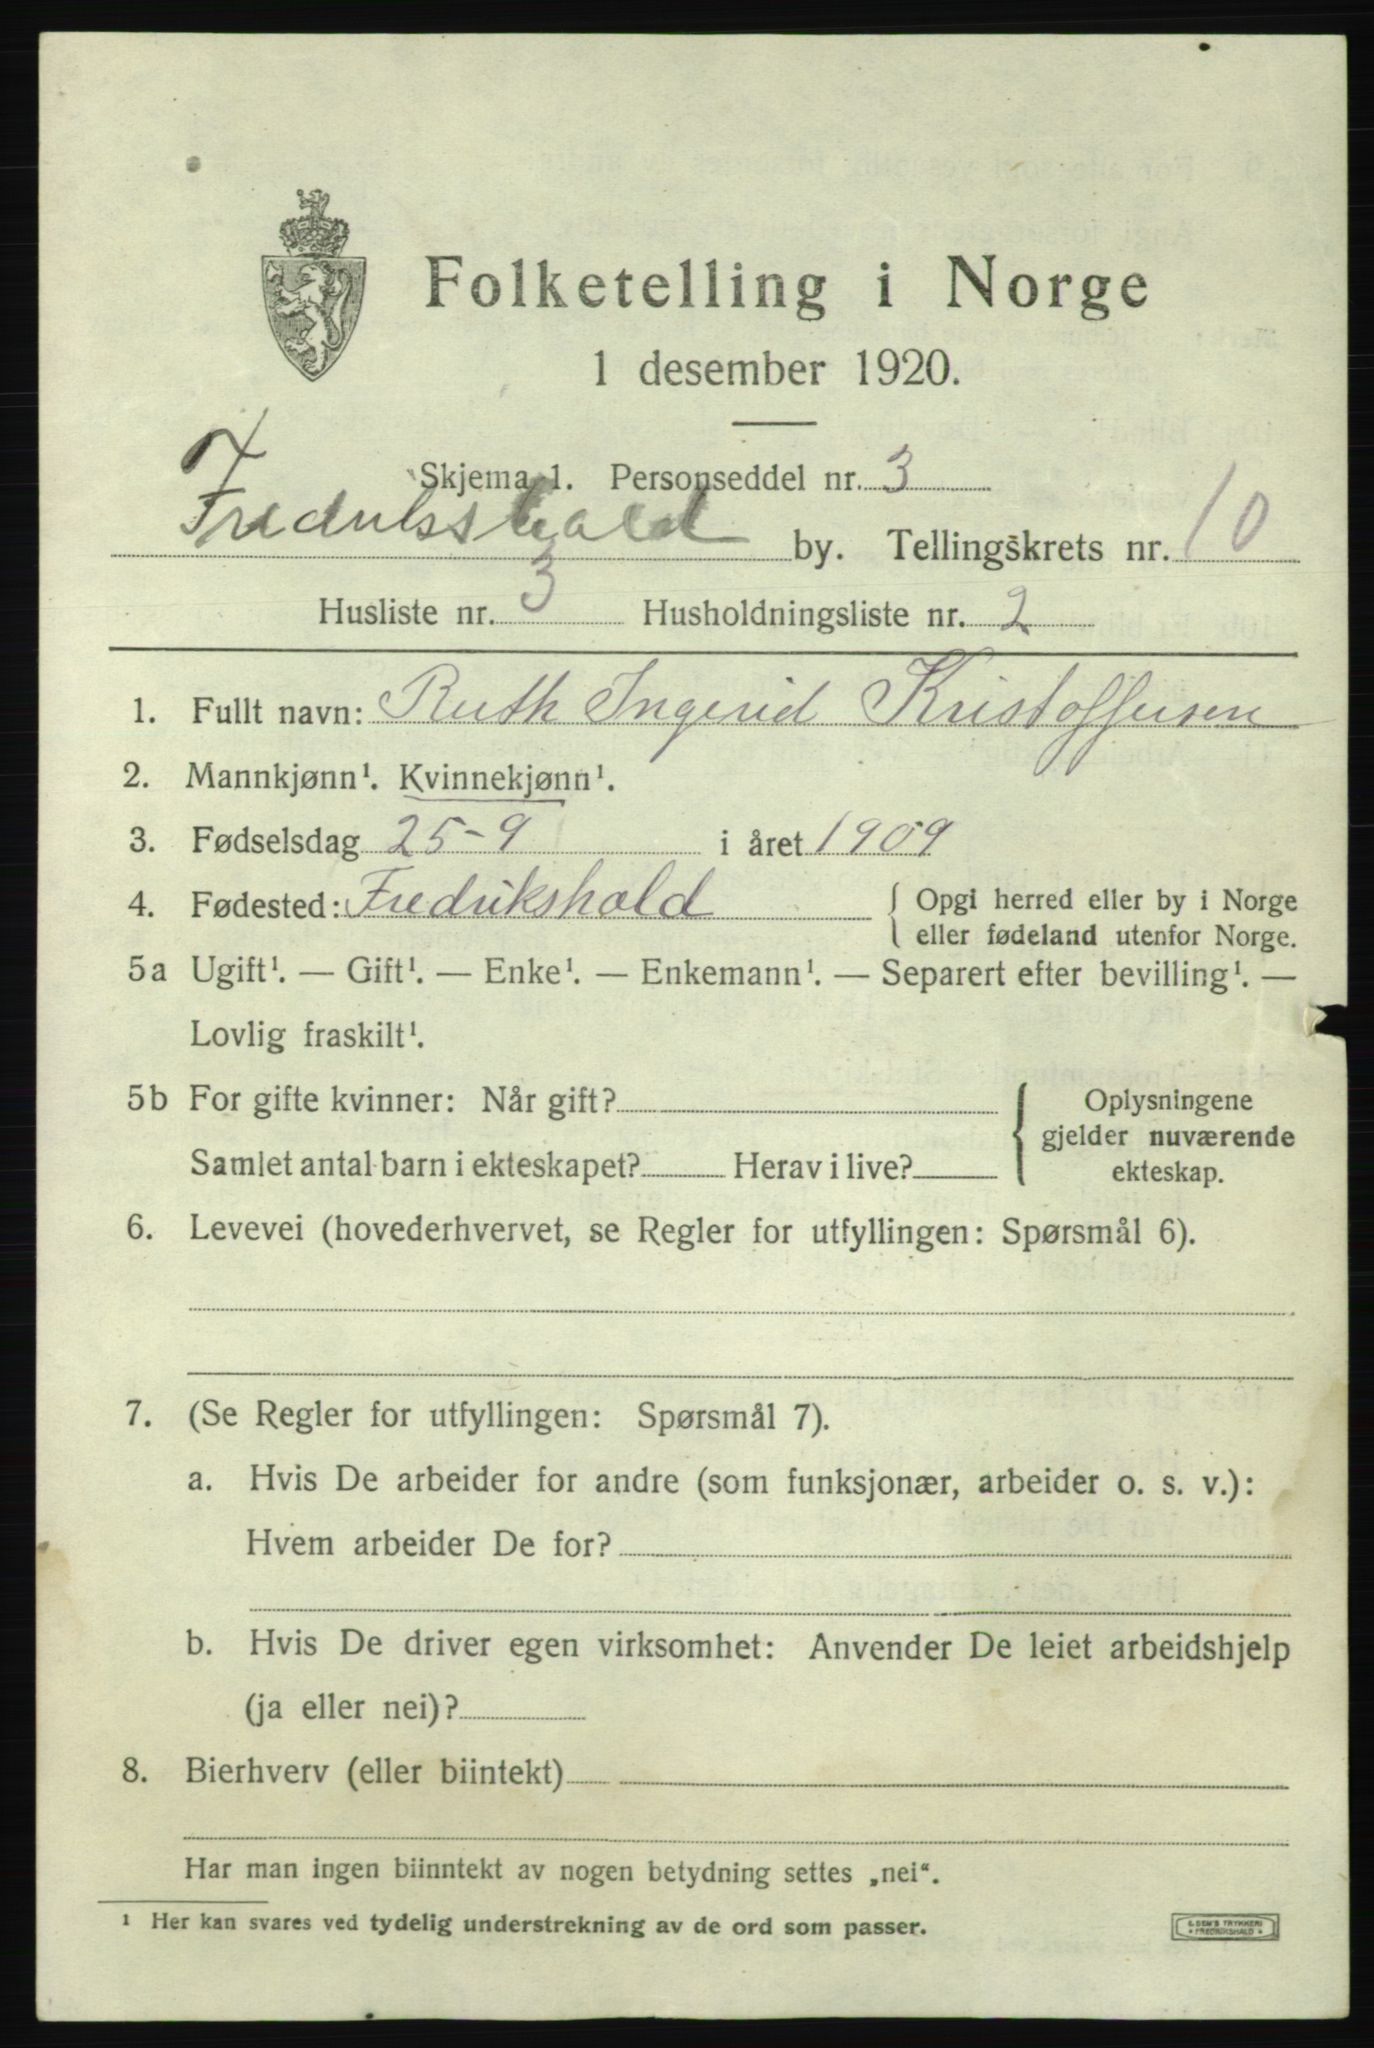 Folketelling i Norge
1 desember 1920.
Skjema 1. Personseddel nr. 3
Fredrikshald by. Tellingskrets nr. 10
Husliste nr. 3 Husholdningsliste nr. 2
1. Fullt navn: Ruth Ingerid Kristoffersen
2. Mannkjønn¹. Kvinnekjønn¹.
3. Fødselsdag 25-9 i året 1909
4. Fødested: Fredrikshald { Opgi herred eller by i Norge
eller fødeland utenfor Norge.
5a Ugift¹. — Gift¹. — Enke¹. — Enkemann¹. — Separert efter bevilling¹. —
Lovlig fraskilt¹.
5b For gifte kvinner: Når gift?
Samlet antal barn i ekteskapet? Herav i live?
{ Oplysningene
gjelder nuværende
ekteskap.
6. Levevei (hovederhvervet, se Regler for utfyllingen: Spørsmål 6).
7. (Se Regler for utfyllingen: Spørsmål 7).
a. Hvis De arbeider for andre (som funksjonær, arbeider o. s. v.):
Hvem arbeider De for?
b. Hvis De driver egen virksomhet: Anvender De leiet arbeidshjelp
(ja eller nei)?
8. Bierhverv (eller biintekt)
Har man ingen biinntekt av nogen betydning settes „nei“.
¹ Her kan svares ved tydelig understrekning av de ord som passer.
TRYKKERI
FREDRIKSHALD